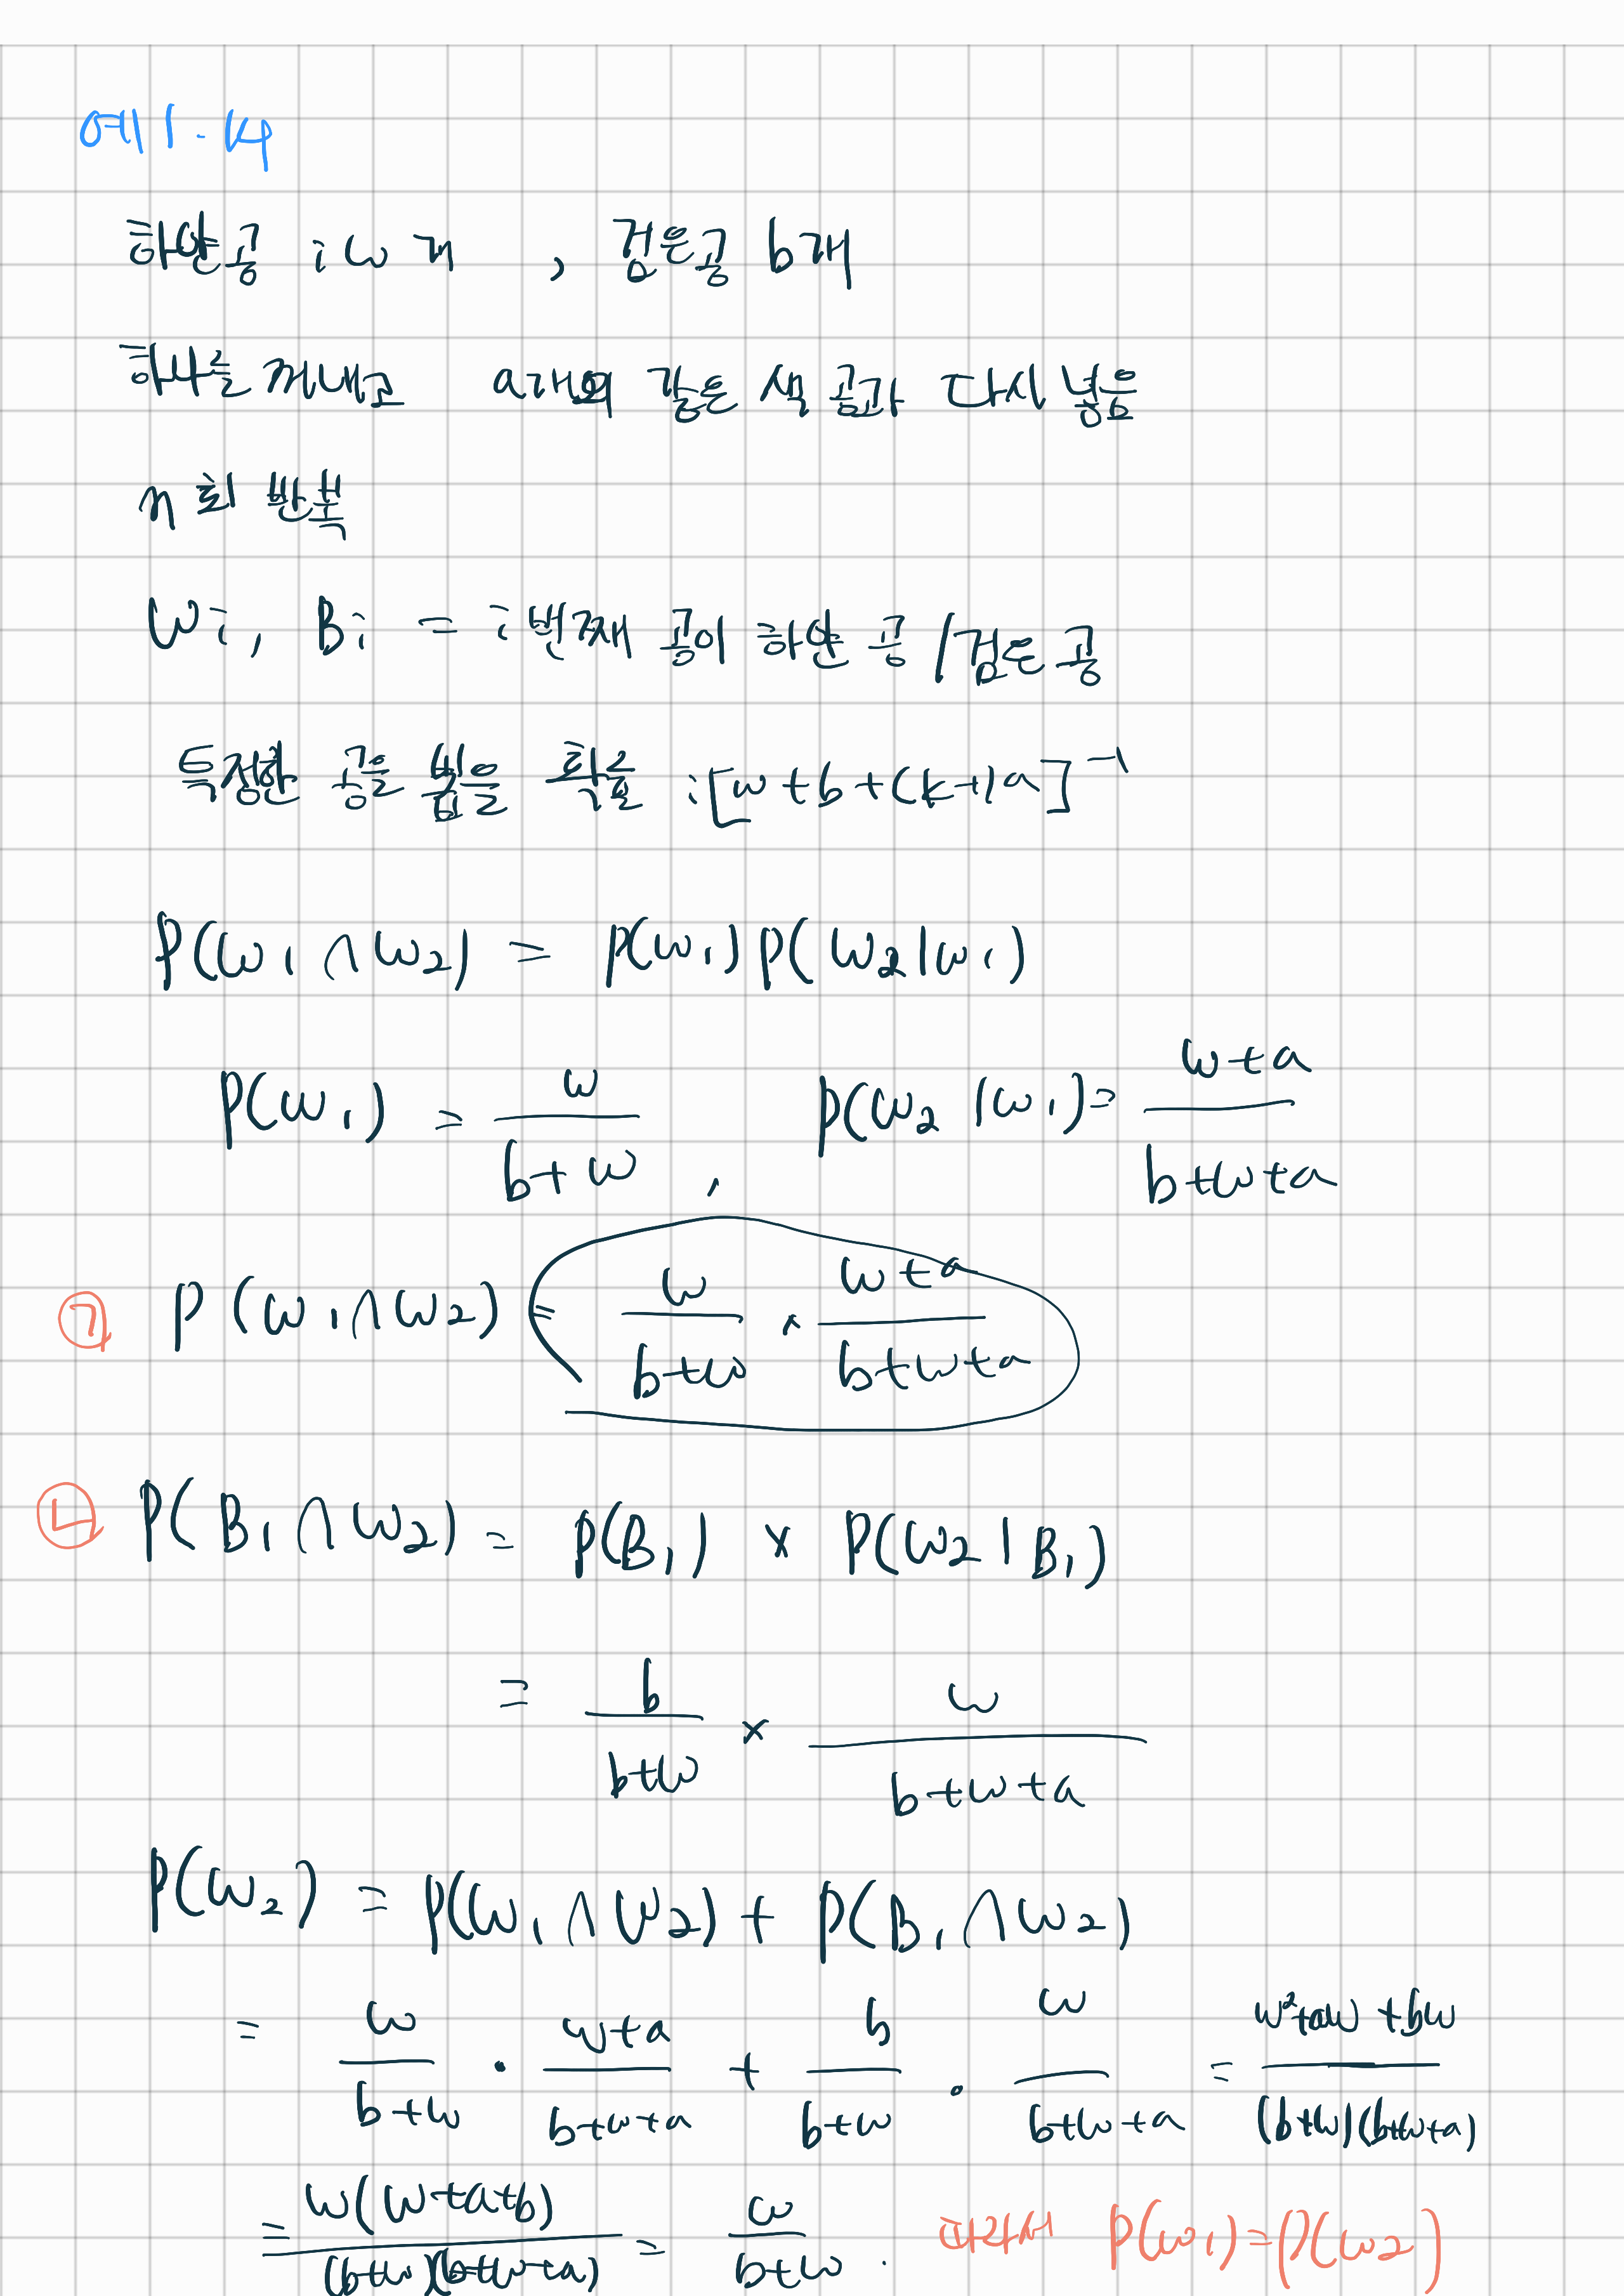 예 1-14
하얀공 : w개 , 검은공 b개
하나를 꺼내고 a개의 같은 색 공과 다시 넣음
n회 반복
Wi, Bi = i번째 공이 하얀 공 / 검은 공
특정한 공을 뽑을 확률 : [w+b+(k+1)a]⁻¹
P(W₁∩W₂) = P(W₁)P(W₂|W₁)
P(W₁) = w/(b+w) , P(W₂|W₁) = (w+a)/(b+w+a)
㉠ P(W₁∩W₂) = w/(b+w) × (w+a)/(b+w+a)
㉡ P(B₁∩W₂) = P(B₁) × P(W₂|B₁)
= b/(b+w) × w/(b+w+a)
P(W₂) = P(W₁∩W₂) + P(B₁∩W₂)
= w/(b+w) · (w+a)/(b+w+a) + b/(b+w) · w/(b+w+a) = (w²+aw+bw)/((b+w)(b+w+a))
= w(w+a+b)/((b+w)(b+w+a)) = w/(b+w) . 따라서 P(W₁)=P(W₂)